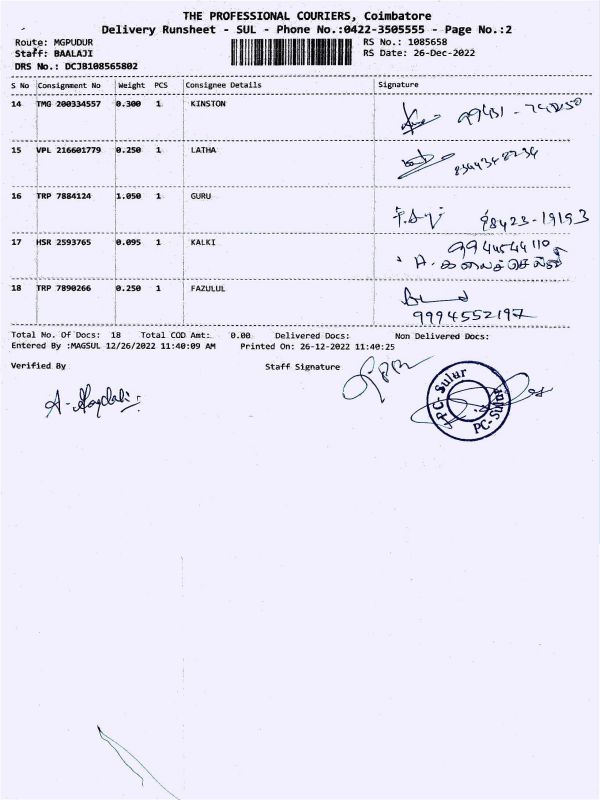 THE PROFESSIONAL COURIERS, Coimbatore
Delivery Runsheet - SUL - Phone No.:0422-3505555 - Page No.:2
Route: MGPUDUR RS No.: 1085658
Staff: BAALAJI RS Date: 26-Dec-2022
DRS No.: DCJB108565802
S No Consignment No Weight PCS Consignee Details Signature
14 TMG 200334557 0.300 1 KINSTON
15 VPL 216601779 0.250 1 LATHA
8344348234
16 TRP 7884124 1.050 1 GURU
98423-19193
9944544110
17 HSR 2593765 0.095 1 KALKI
A. கலைச்செல்வி
18 TRP 7890266 0.250 1 FAZULUL
9994552197
Total No. Of Docs: 18 Total COD Amt: 0.00 Delivered Docs: Non Delivered Docs:
Entered By :MAGSUL 12/26/2022 11:40:09 AM Printed On: 26-12-2022 11:40:25
Verified By Staff Signature
PC-Sulur
PC-Sulur